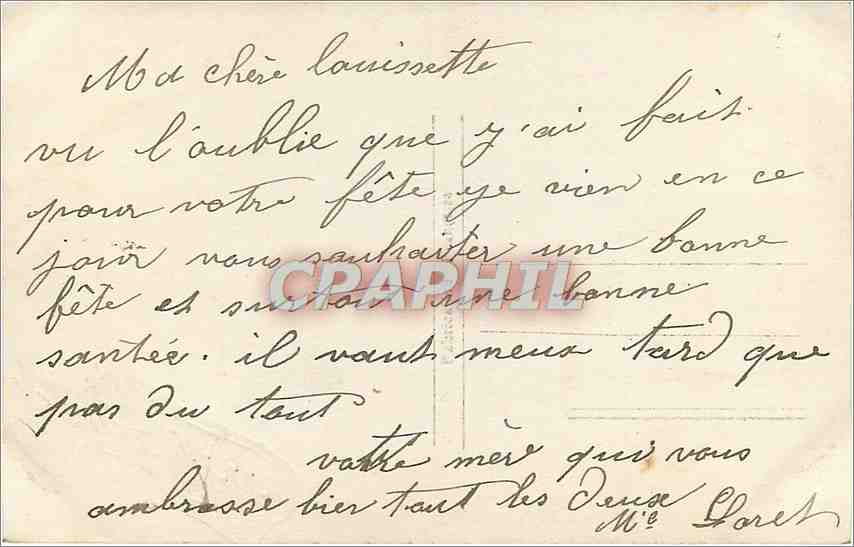 Ma chère louissette
vu l'oublie que y'ai fait
pour votre fête ye vien en ce
jour vous souhaiter une bonne
fête et surtout une bonne
santée. il vaut meux tard que
pas du tout
votre mère qui vous
ambrasse bien tout les deux
Mie Floret
CPAPHIL